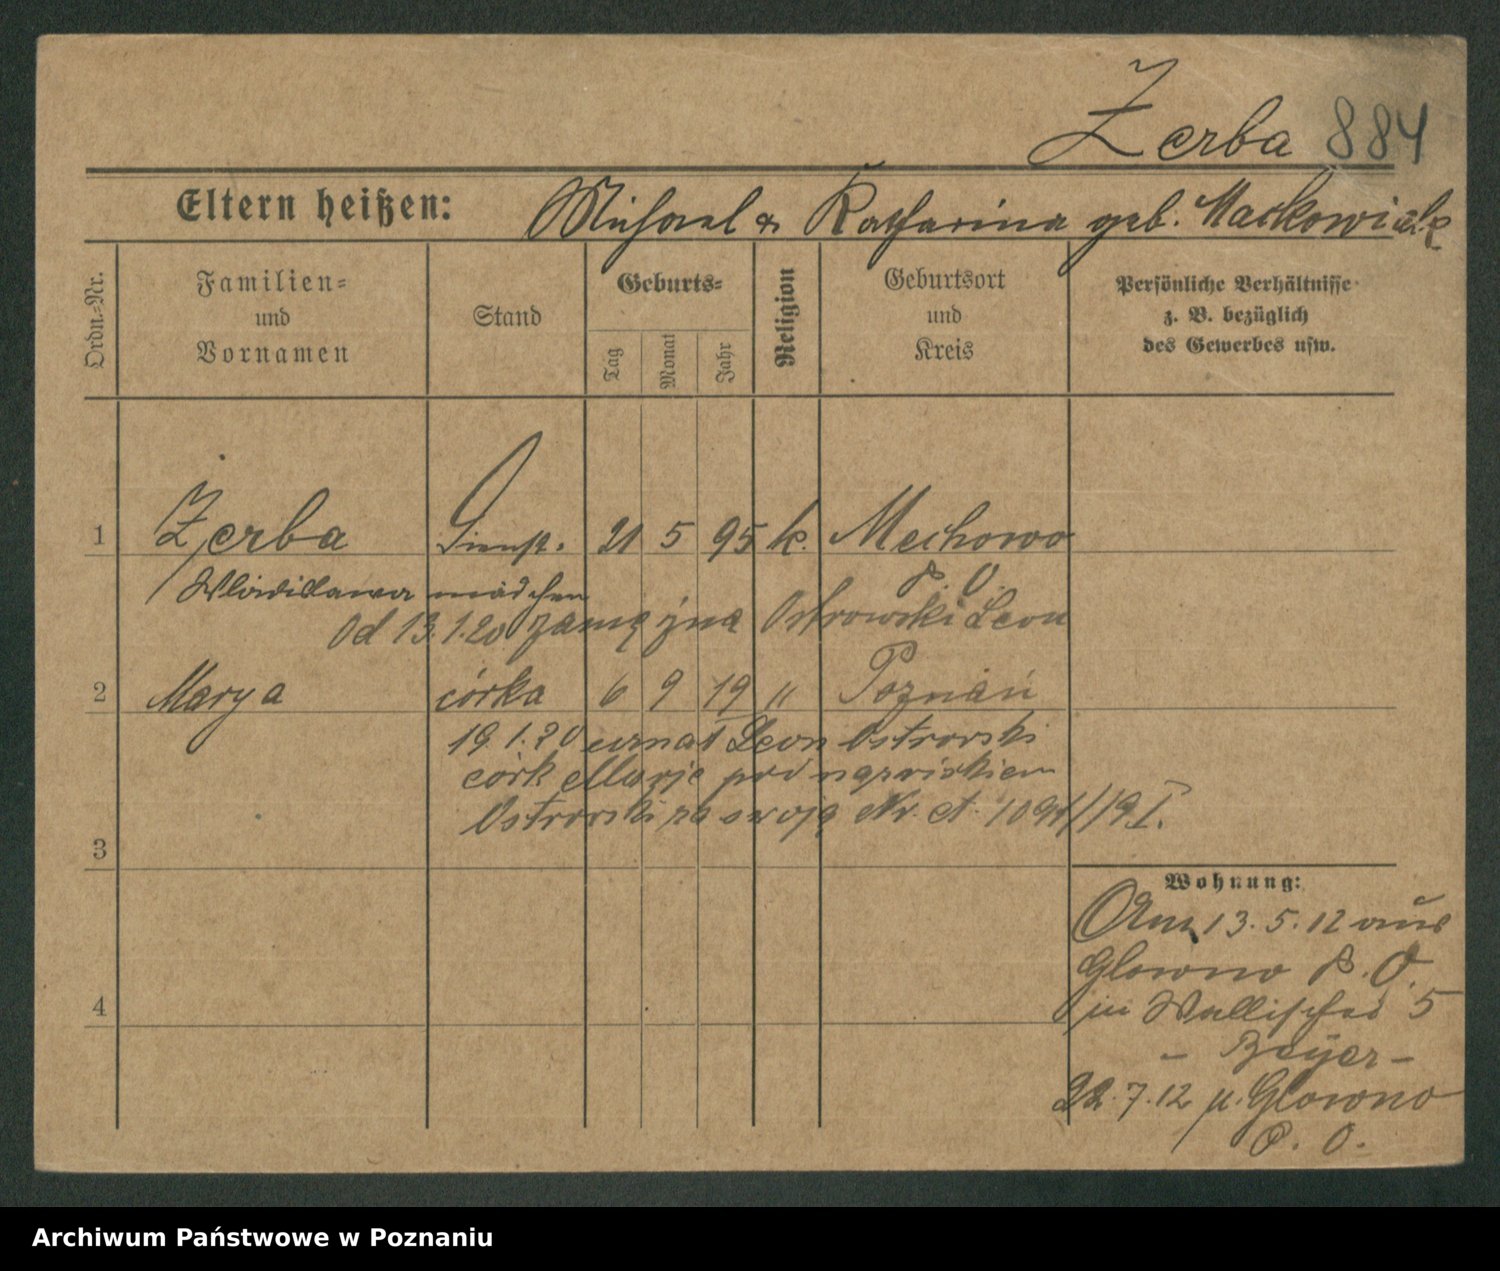 Zerba 884
Eltern heißen: Michael & Katharina geb. Mackowiak
Ordn.-Nr.
Familien-
und
Vornamen
Stand
Geburts-
Tag
Monat
Jahr
Religion
Geburtsort
und
Kreis
Persönliche Verhältnisse
z. B. bezüglich
des Gewerbes usw.
1 Zerba Dienst. 21 5 95 k. Mechowo
Wladislawa mädchen P. O.
Od 13.1.20 zamężna Ostrowski Leon
2 Marya córka 6 9 19 " Poznań
19.1.20 uznał Leon Ostrowski
córk Marje pod nazwiskiem
Ostrowski za swoją Nr. A.
3
Wohnung:
Am 13.5.12 aus
Glowno P. O.
in Wallischei 5
- Beyer -
4
22.7.12 n. Glowno
P. O.
Archiwum Państwowe w Poznaniu